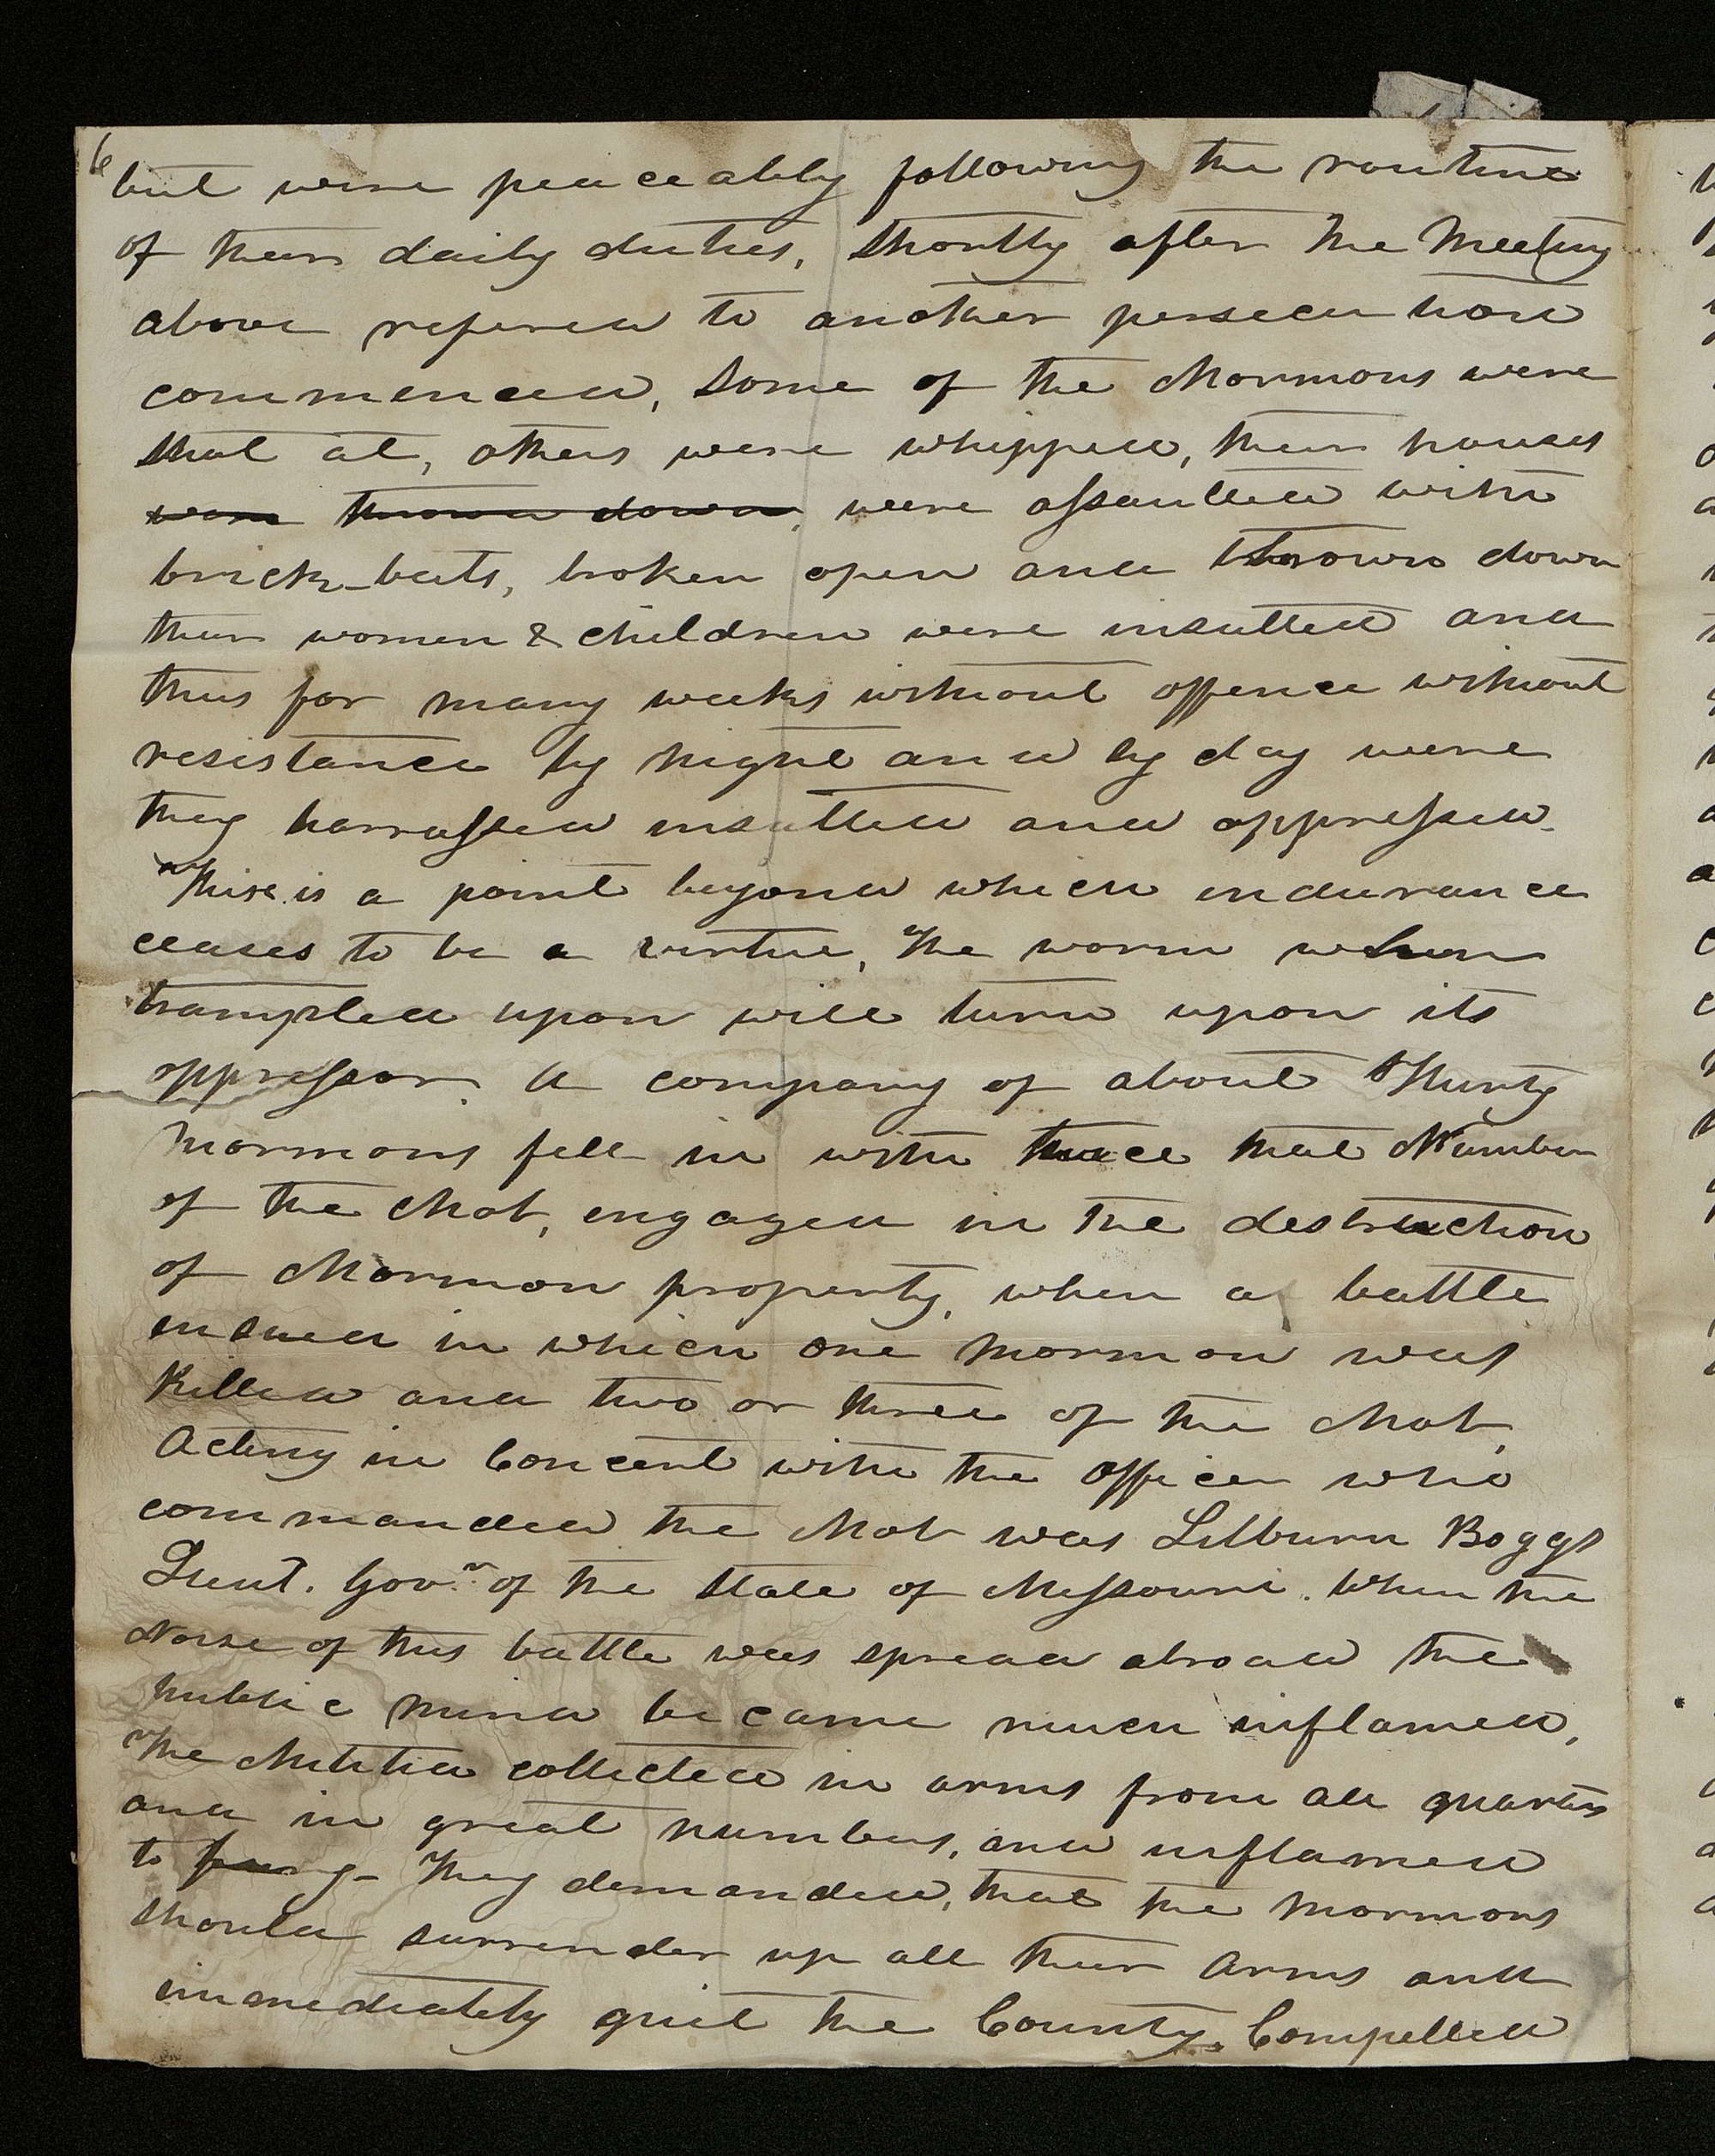 6
but were peaceably following the routine
of their daily duties, Shortly after the Meeting
above refered to another persecution
commenced, Some of the Mormons were
shot at, others were whipped, their houses
were thrown down, were assaulted with
brick-bats, broken open and thrown down
their women & children were insulted and
thus for many weeks without offence without
resistance by night and by day were
they harrassed insulted and oppressed.
There is a point beyond which endurance
ceases to be a virtue, The worm when
trampled upon will turn upon its
oppressor. A company of about Thirty
Mormons fell in with twice that Number
of the Mob, engaged in the destruction
of Mormon property, when a battle
ensued in which one Mormon was
Killed and two or three of the Mob,
Acting in Concert with the Officer who
commanded the Mob was Lilburn Boggs
Lieut. Govr. of the State of Missouri. When the
Noise of this battle was spread abroad the
public mind became much inflamed,
The Militia collected in arms from all quarters
and in great numbers, and inflamed
to fury- They demanded, that the Mormons
should surrender up all their Arms and
immediately quit the County. Compelled